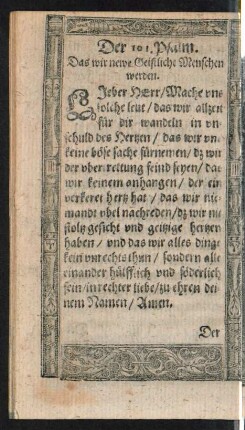 Der 101. Psalm.
Das wir newe Geistliche Menschen
werden.
LJeber HErr/Mache vns
solche leut/das wir allzeit
für dir wandeln in vn-
schuld des Hertzen/das wir vn-
keine böse sache fürnemen/dz wir
der vbertrettung feind seyen/das
wir keinem anhangen/der ein
verkert hertz hat/das wir nie-
mandt vbel nachreden/dz wir nit
stoltz gesicht vnd geitzige hertzen
haben/vnd das wir alles dings
kein vnrechts thun/sondern alle
einander hülfflich vnd föderlich
sein/in rechter liebe/zu ehren dei
nem Namen/Amen.
Der